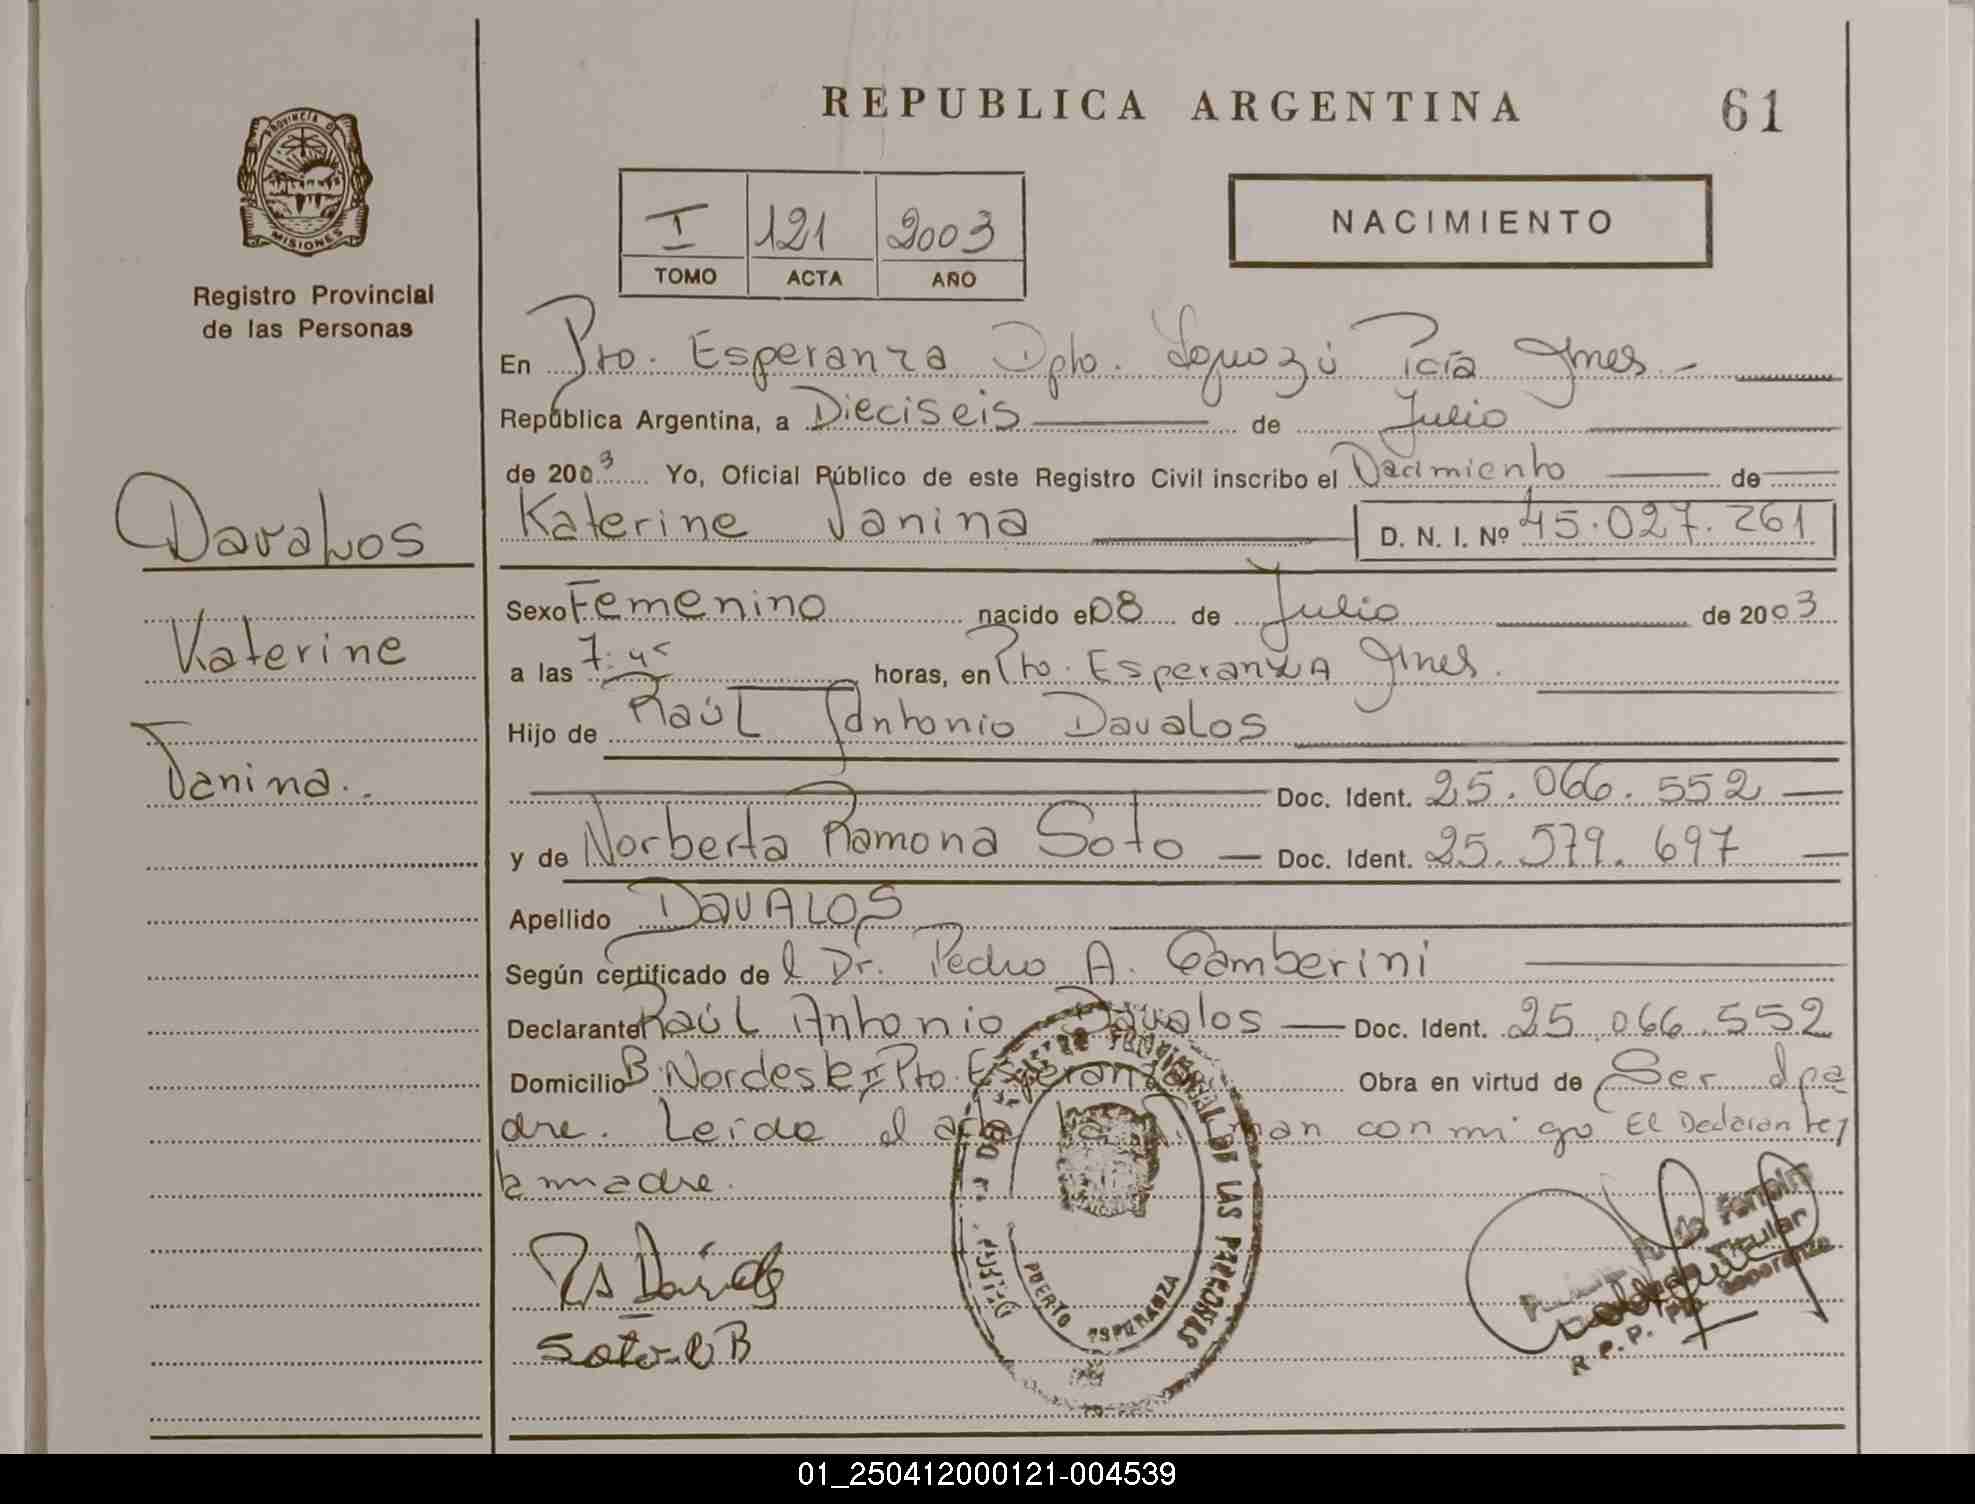 REPUBLICA ARGENTINA
61
PROVINCIA DE
MISIONES
Registro Provincial
de las Personas
I 121 2003
TOMO ACTA AÑO
NACIMIENTO
En Pto. Esperanza Dpto. Iguazú Pcia Mnes.
República Argentina, a Dieciseis de Julio
de 2003 Yo, Oficial Público de este Registro Civil inscribo el Nacimiento de
Katerine Janina D. N. I. Nº 45.027.261
Davalos
Katerine
Janina.
Sexo Femenino nacido el 08 de Julio de 2003
a las 7:45 horas, en Pto. Esperanza Mnes.
Hijo de Raúl Antonio Davalos
Doc. Ident. 25.066.552
y de Norberta Ramona Soto Doc. Ident. 25.579.697
Apellido DavALOS
Según certificado del Dr. Pedro A. Gamberini
Declarante Raúl Antonio Davalos Doc. Ident. 25.066.552
Domicilio B. Nordeste II Pto. Esperanza Obra en virtud de Ser el pa
dre. Leida el acta la firman conmigo El Declarante y
la madre.
REGISTRO PROVINCIAL DE LAS PERSONAS
PUERTO ESPERANZA
Soto
Titular
R. P. P. Pto. Esperanza
01_250412000121-004539